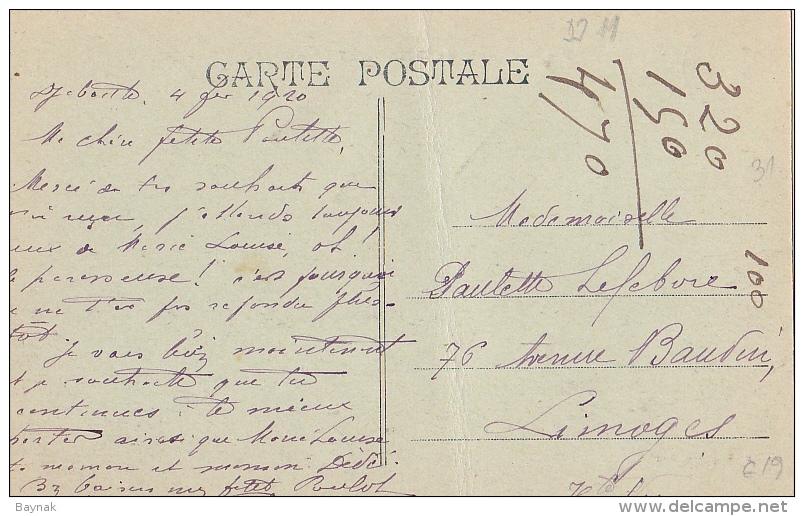 CARTE POSTALE
4 1920
Ma chère petite Paulette,
Merci de tes souhaits que
reçu, j'attends toujours
ceux de Marie Louise, oh!
la paresseuse! c'est pourquoi
je ne t'ai pas répondu plus-
tôt
Je vais bien maintenant
et je souhaite que tu
continues à te mieux
porter ainsi que Marie Louise
ta maman et Dédé.
Bx baisers ma petite
Mademoiselle
Paulette Lefebvre
76 Avenue Baudin,
Limoges
Hte
320
150
470
31
100
C19
Baynak
www.delcampe.net